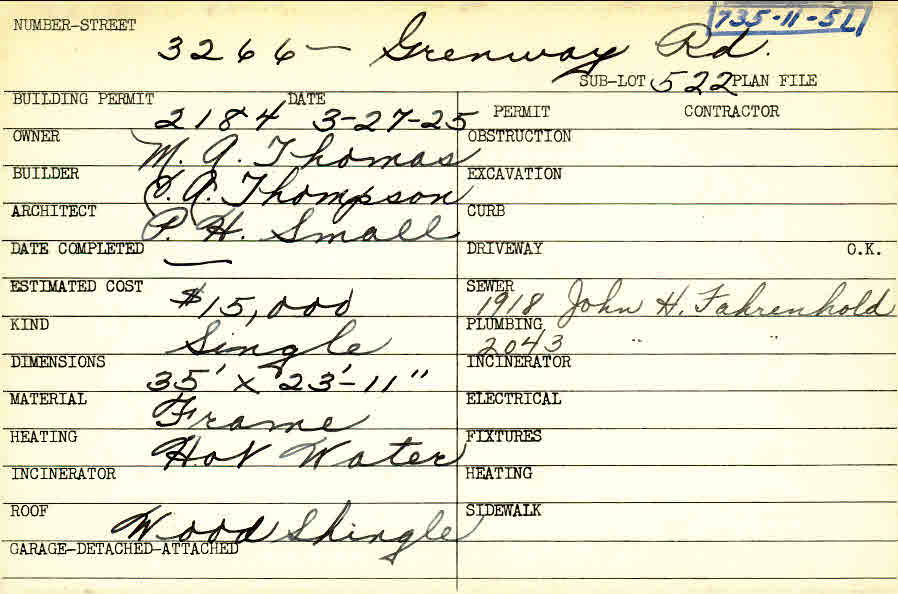 735-11-51
NUMBER-STREET 3266- Grenway Rd.
SUB-LOT 522 PLAN FILE
BUILDING PERMIT 2184 DATE 3-27-25 PERMIT CONTRACTOR
OWNER M. A. Thomas OBSTRUCTION
BUILDER C. A. Thompson EXCAVATION
ARCHITECT P. H. Small CURB
DATE COMPLETED — DRIVEWAY O.K.
ESTIMATED COST $15,000 SEWER 1918 John H. Fahrenhold
KIND Single PLUMBING 2043 " "
DIMENSIONS 35' x 23'-11" INCINERATOR
MATERIAL Frame ELECTRICAL
HEATING Hot Water FIXTURES
INCINERATOR HEATING
ROOF Wood Shingle SIDEWALK
GARAGE-DETACHED-ATTACHED